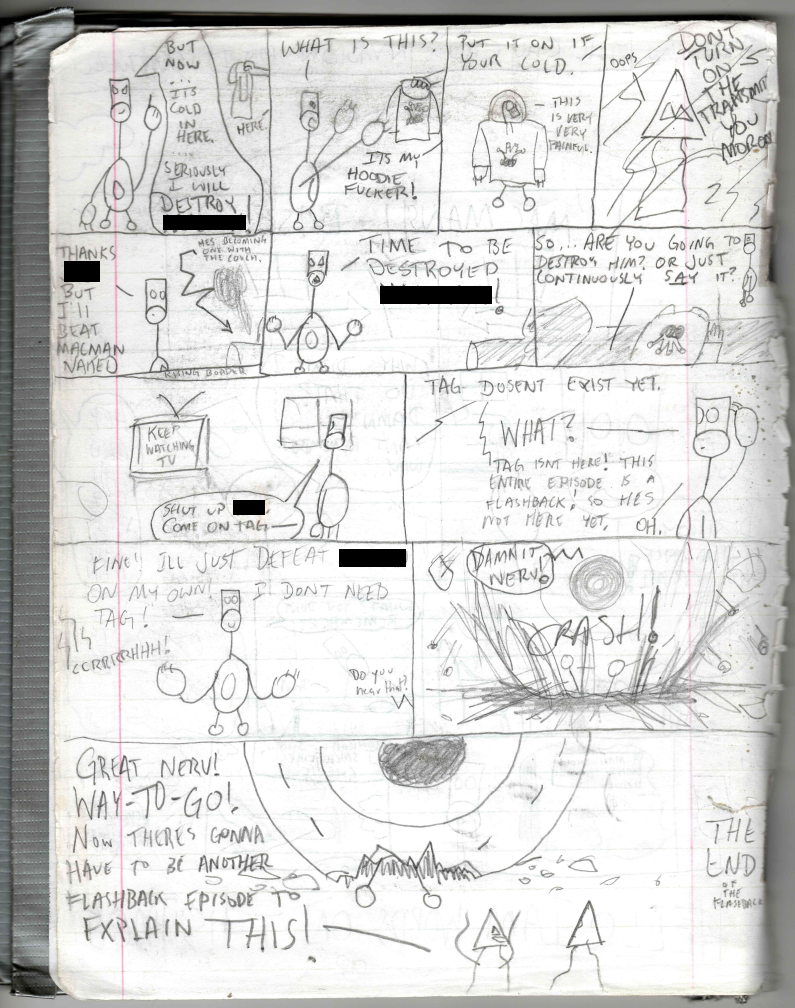 BUT
NOW
...
ITS
COLD
IN
HERE.
....
SERIOUSLY
I WILL
DESTROY
!
HERE
WHAT IS THIS?
ITS MY
HOODIE
FUCKER!
PUT IT ON IF
YOUR COLD.
THIS
IS VERY
VERY
PAINFUL.
OOPS
DONT
TURN
ON
THE
TRANSMIT
YOU
MORON
THANKS
BUT
I'll
BEAT
MACMAN
NAKED
HES BECOMING
ONE WITH
THE COUCH.
TIME TO BE
DESTROYED
!
SO... ARE YOU GOING TO
DESTROY HIM? OR JUST
CONTINUOUSLY SAY IT?
KEEP
WATCHING
TV
SHUT UP
COME ON TAG
TAG DOSENT EXIST YET.
WHAT?
TAG ISNT HERE! THIS
ENTIRE EPISODE IS A
FLASHBACK! SO HES
NOT HERE YET.
OH.
FINE! ILL JUST DEFEAT
ON MY OWN! I DONT NEED
TAG!
CCRRRRRHHH!
Do you
hear that?
DAMNIT
NERV!
CRASH!
GREAT NERV!
WAY-TO-GO!
NOW THERES GONNA
HAVE TO BE ANOTHER
FLASHBACK EPISODE TO
EXPLAIN THIS!
THE
END
OF
THE
FLASHBACK